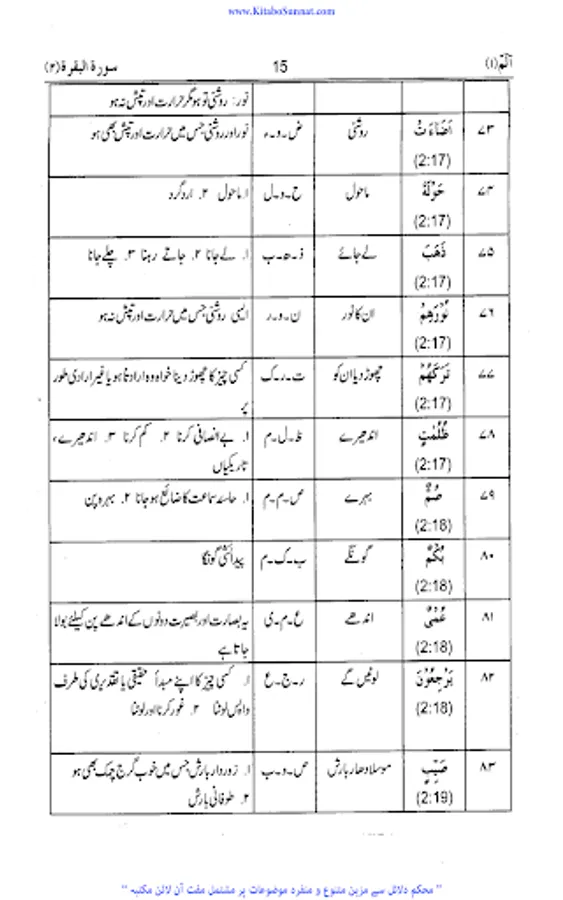 www.KitaboSunnat.com
الٓمّٓ (۱) 15 سورة البقرة (۲)
نور: روشنی تو ہو مگر حرارت اور تپش نہ ہو
۷۳ اَضَاءَتْ (2:17) روشنی ض-و-ء نور اور روشنی جس میں حرارت اور تپش بھی ہو
۷۴ حَوْلَهٗ (2:17) ماحول ح-و-ل ۱. ماحول ۲. اردگرد
۷۵ ذَهَبَ (2:17) لے جائے ذ-ھ-ب ۱. لے جانا ۲. جاتے رہنا ۳. چلے جانا
۷۶ نُوْرِهِمْ (2:17) ان کا نور ن-و-ر ایسی روشنی جس میں حرارت اور تپش نہ ہو
۷۷ تَرَكَهُمْ (2:17) چھوڑ دیا ان کو ت-ر-ک کسی چیز کا چھوڑ دینا خواہ وہ ارادتا ہو یا غیر ارادی طور
پر
۷۸ ظُلُمٰتٍ (2:17) اندھیرے ظ-ل-م ۱. بے انصافی کرنا ۲. کم کرنا ۳. اندھیرے،
تاریکیاں
۷۹ صُمٌّ (2:18) بہرے ص-م-م ۱. حاسہ سماعت کا ضائع ہو جانا ۲. بہرہ پن
۸۰ بُكْمٌ (2:18) گونگے ب-ک-م پیدائشی گونگا
۸۱ عُمْیٌ (2:18) اندھے ع-م-ی یہ بصارت اور بصیرت دونوں کے اندھے پن کیلئے بولا
جاتا ہے
۸۲ يَرْجِعُوْنَ (2:18) لوٹیں گے ر-ج-ع ۱. کسی چیز کا اپنے مبدأ حقیقی یا تقدیری کی طرف
واپس لوٹنا ۲. غور کرنا اور لوٹنا
۸۳ صَيِّبٍ (2:19) موسلا دھار بارش ص-و-ب ۱. زور دار بارش جس میں خوب گرج چمک بھی ہو
۲. طوفانی بارش
" محکم دلائل سے مزین متنوع و منفرد موضوعات پر مشتمل مفت آن لائن مکتبہ "